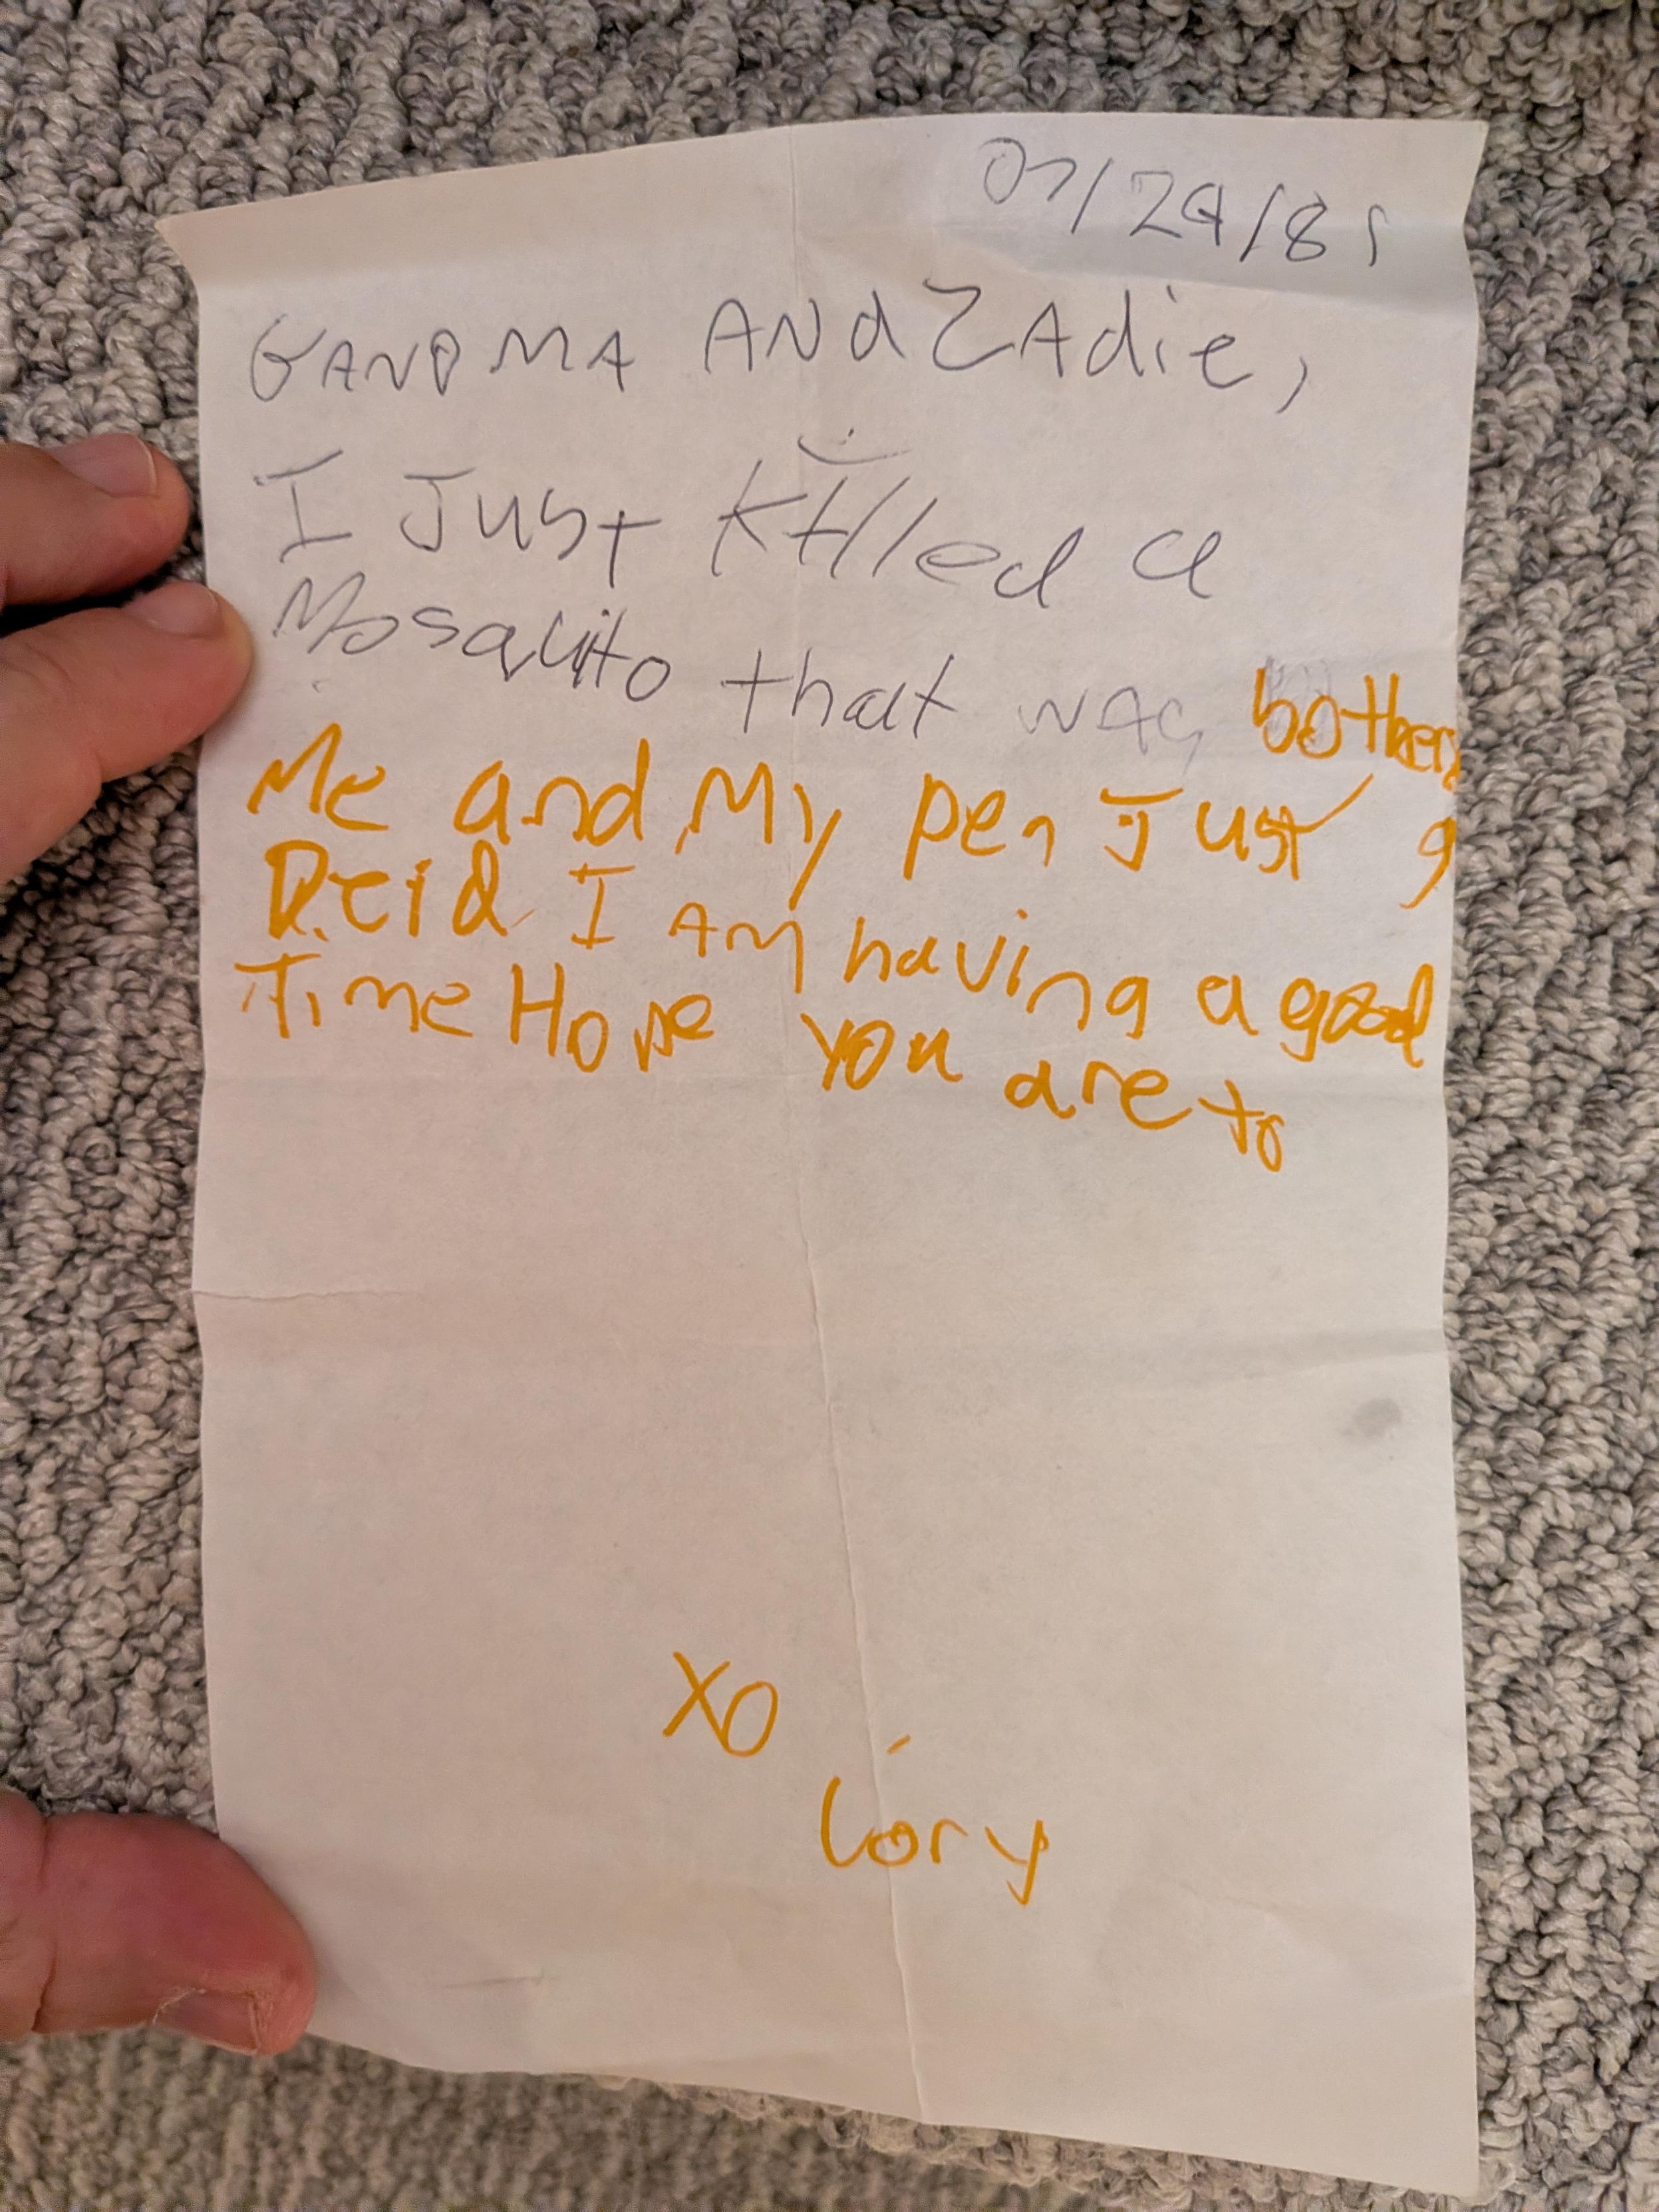 07/29/85
GANDMA ANd ZAdie,
I Just Killed a
Mosquito that was bothering
Me and My pen Just
Deid I AM having a good
Time Hope you are to
XO
Cory